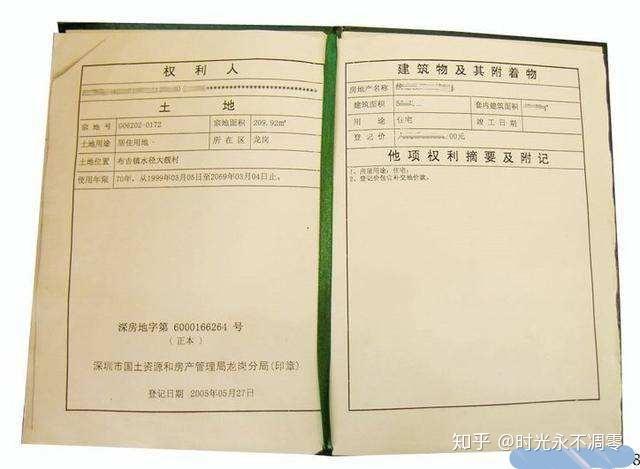 权利人
土地
宗地号 G06202-0172 宗地面积 209.92㎡
土地用途 居住用地 所在区 龙岗
土地位置 布吉镇水径大靓村
使用年限 70年，从1999年03月05日至2069年03月04日止。
深房地字第 6000166264 号
(正本)
深圳市国土资源和房产管理局龙岗分局(印章)
登记日期 2005年05月27日
建筑物及其附着物
房地产名称
建筑面积 套内建筑面积
用途 住宅 竣工日期
登记价 .00元
他项权利摘要及附记
1、房屋用途：住宅；
2、登记价包含补交地价款。
知乎 @时光永不凋零